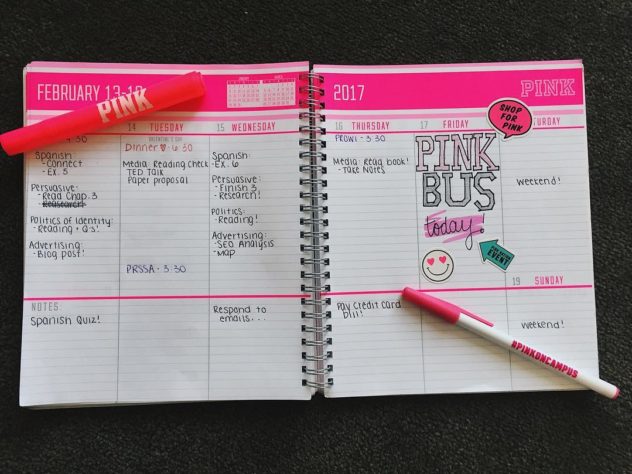 FEBRUARY 13-19
PINK
14 TUESDAY
VALENTINE'S DAY
15 WEDNESDAY
4:30
Spanish:
-Connect
-Ex. 5
Persuasive:
-Read Chap. 3
-Research
Politics of Identity:
-Reading + Q's!
Advertising:
-Blog post!
Dinner ♡ 6:30
Media: Reading Check
TED Talk
Paper proposal
PRSSA - 3:30
Spanish:
-Ex. 6
Persuasive:
-Finish 3
-Research!
Politics:
-Reading!
Advertising:
-SEO Analysis
-Map
NOTES:
Spanish Quiz!
Respond to
emails...
2017
PINK
16 THURSDAY
17 FRIDAY
SHOP
FOR
PINK
TURDAY
PROWL - 3:30
Media: Read book!
-Take Notes
PINK
BUS
today!
EVENT
Weekend!
19 SUNDAY
Pay Credit Card
bill!
Weekend!
#PINKONCAMPUS